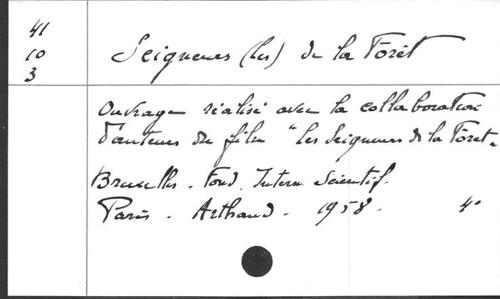 41
10
3
Seigneurs (Les) de la Forêt
Ouvrage réalisé avec la collaboration
d'auteurs du film "Les Seigneurs de la Forêt.
Bruxelles. Fond. Intern. Scientif.
Paris. Arthaud. 1958. 4°